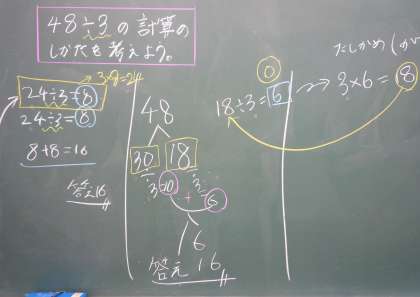 48÷3の計算の
しかたを考えよう。
3×8=24
24÷3=8
24÷3=8
8+8=16
答え16
48
30 18
÷3=10 ÷3
+ 6
16
答え 16
0
18÷3=6
たしかめ
3×6=8